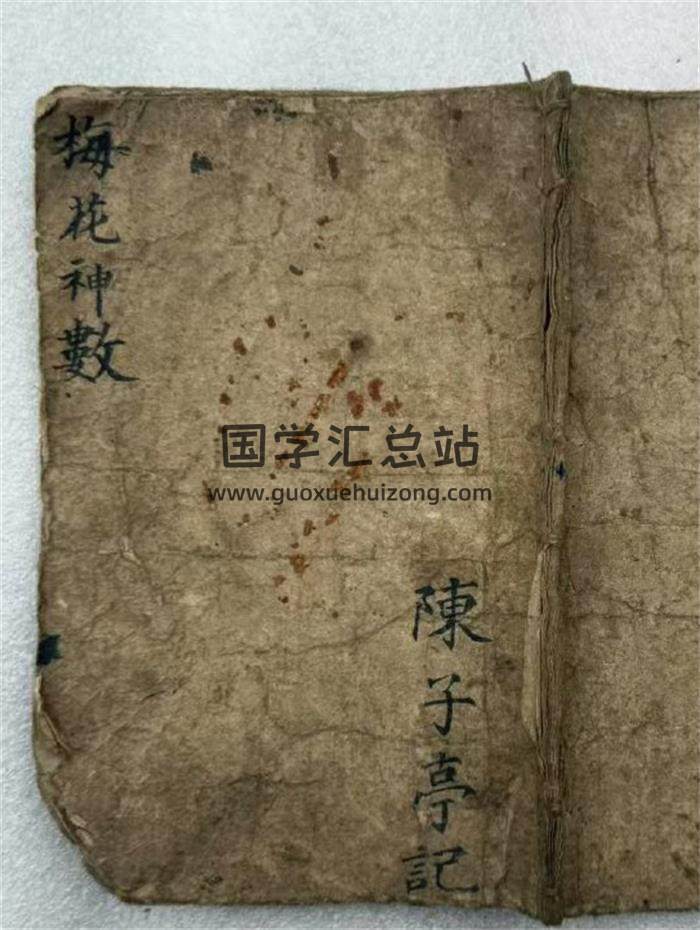 梅花神數
国学汇总站
www.guoxuehuizong.com
陳子亭記